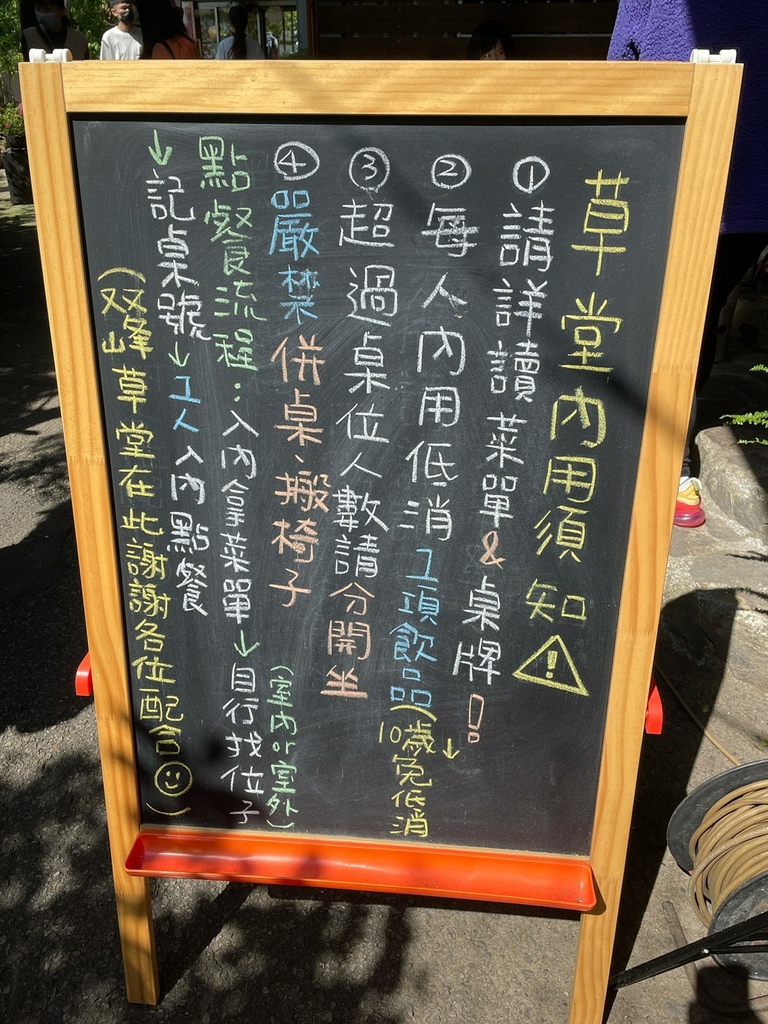 草堂內用須知⚠
①請詳讀菜單&桌牌!
②每人內用低消1項飲品(10歲↓免低消)
③超過桌位人數請分開坐
④嚴禁併桌、搬椅子
點餐流程:入內拿菜單↓自行找位子(室內or室外)
↓記桌號↓1人入內點餐
(双峰草堂在此謝謝各位配合☺)